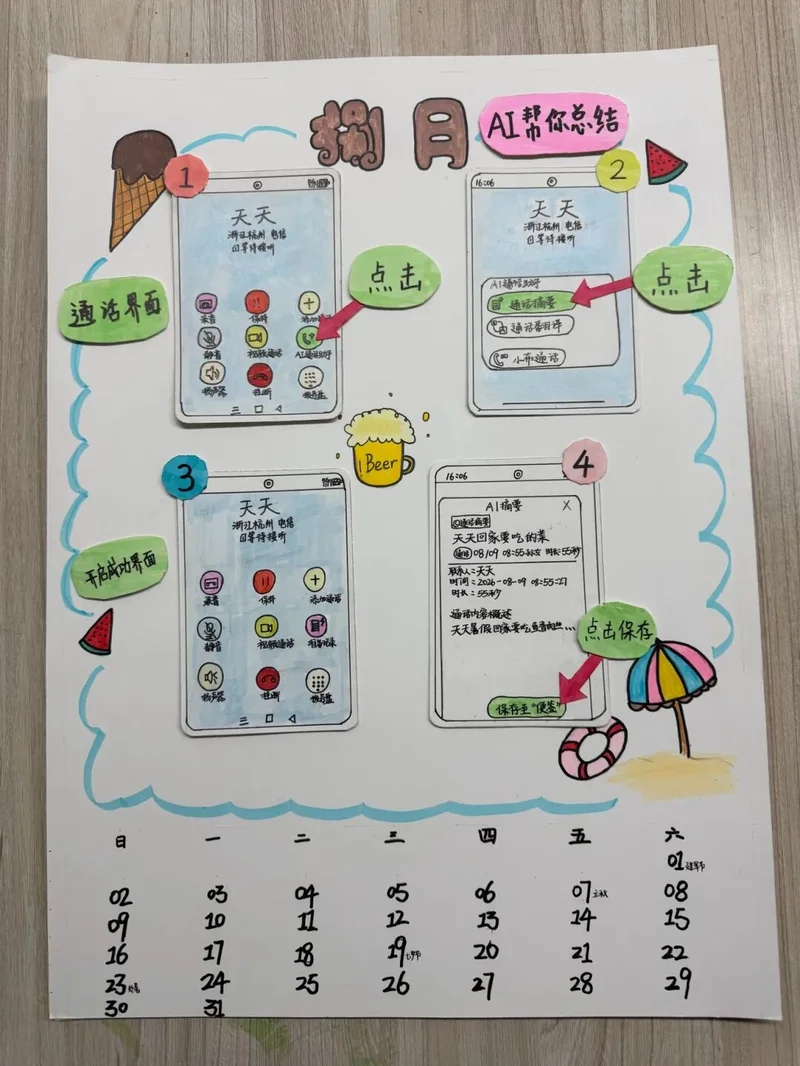 捌月
AI帮你总结
1
天天
浙江杭州 电信
等待接听
录音
保持
静音
视频通话
AI通话助手
扬声器
挂断
拨号盘
通话界面
点击
2
16:06
天天
浙江杭州 电信
等待接听
AI通话助手
通话摘要
通话翻译
小布通话
点击
Beer
3
天天
浙江杭州 电信
等待接听
录音
保持
添加通话
静音
视频通话
扬声器
挂断
拨号盘
开启成功界面
4
16:06
AI摘要 X
通话摘要
天天回家要吃的菜
08/09 08:55 时长:55秒
联系人:天天
时间:2026-08-09 08:55:27
时长:55秒
通话内容概述
天天暑假回家要吃
点击保存
保存至“便签”
日 一 二 三 四 五 六
01 建军节
02 03 04 05 06 07 立秋 08
09 10 11 12 13 14 15
16 17 18 19 七夕节 20 21 22
23 处暑 24 25 26 27 28 29
30 31